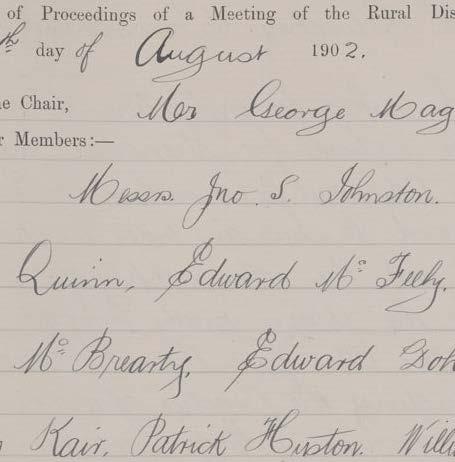 of Proceedings of a Meeting of the Rural Dis
th day of August 1902.
he Chair, Mr George Mag
r Members:—
Messrs. Jno. S. Johnston.
Quinn, Edward Mc Feely,
Mc Brearty, Edward Doh
Kair, Patrick Huston. Willi